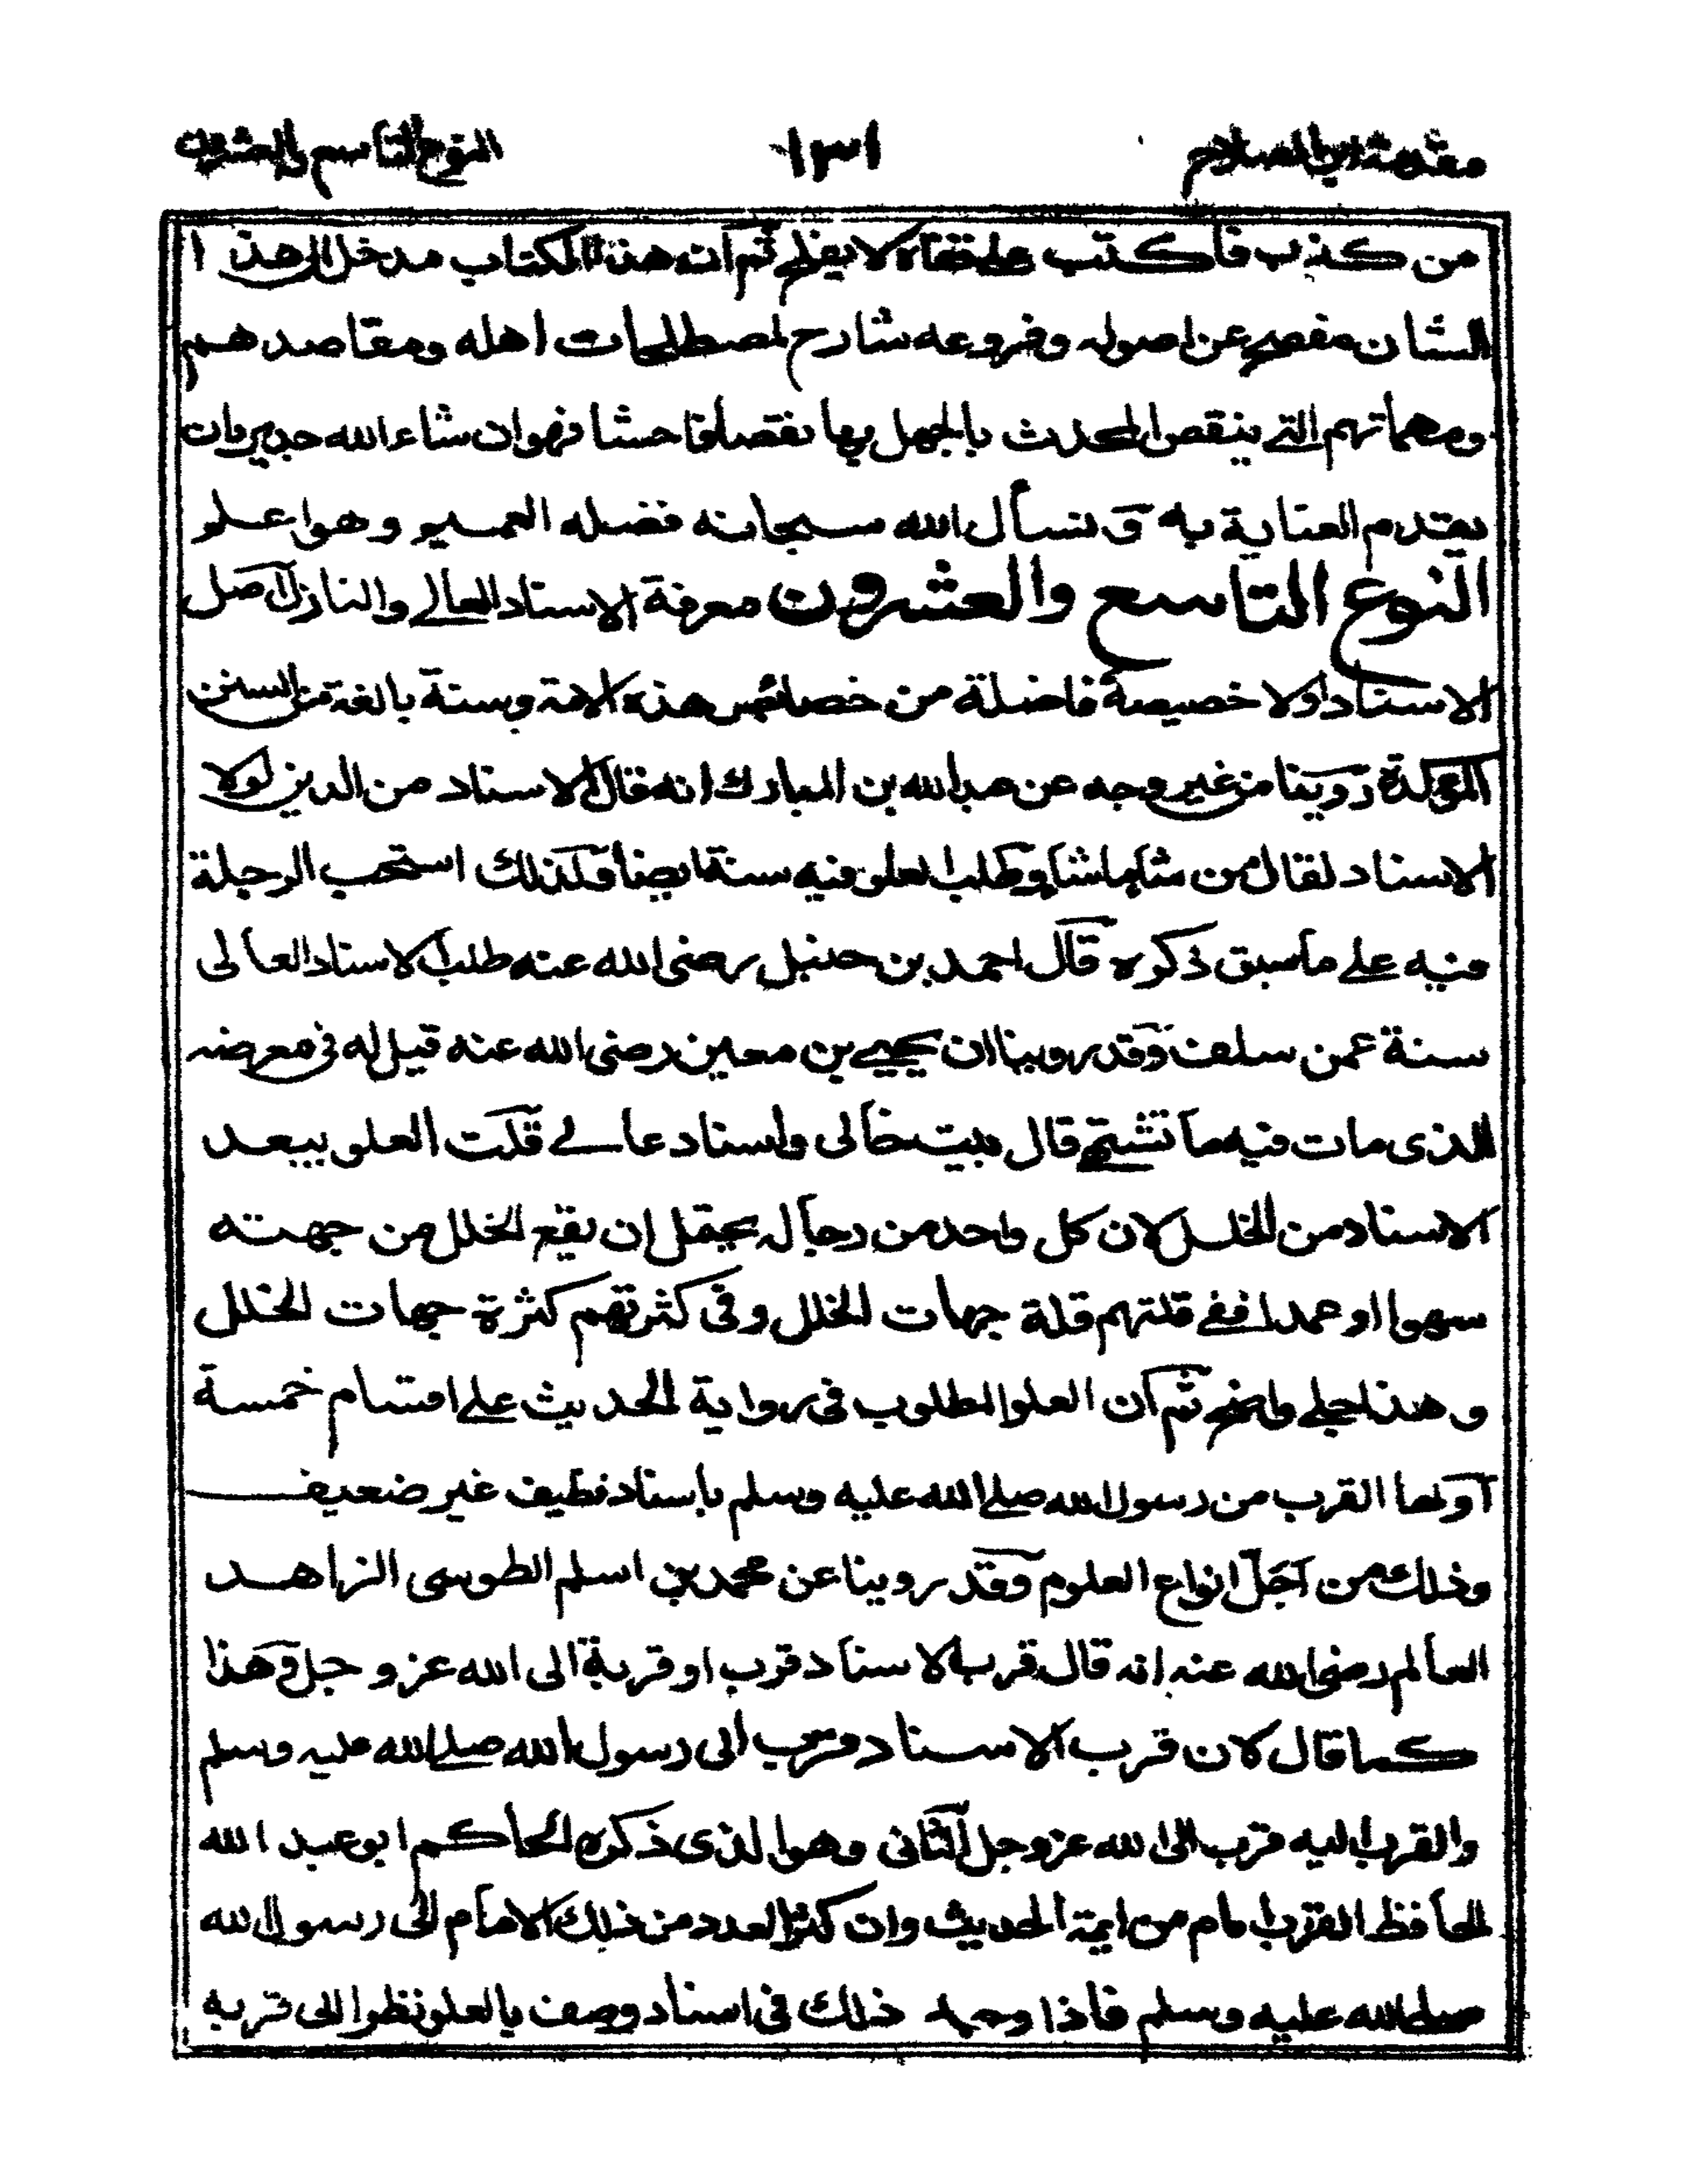 مقدمة ابن الصلاح ١٣١ النوع التاسع والعشرون
من كذب فاكتب على قفاه لا يفلح ثم ان هذا الكتاب مدخل الى هذا
الشان مفصح عن اصوله وفروعه شارح لمصطلحات اهله ومقاصدهم
ومهماتهم التي ينقص المحدث بالجهل بها نقصا فاحشا فهو ان شاء الله جدير بان
تقدم العناية به ونسأل الله سبحانه فضله العميم وهو اعلم
النوع التاسع والعشرون معرفة الاسناد العالي والنازل اصل
الاسناد اولا خصيصة فاضلة من خصائص هذه الامة وسنة بالغة من السنن
المؤكدة روينا من غير وجه عن عبد الله بن المبارك انه قال الاسناد من الدين لولا
الاسناد لقال من شاء ما شاء وطلب العلو فيه سنة ايضا ولذلك استحب الرحلة
فيه على ما سبق ذكره قال احمد بن حنبل رضى الله عنه طلب الاسناد العالى
سنة عمن سلف وقد روينا ان يحيى بن معين رضى الله عنه قيل له فى مرضه
الذى مات فيه ما تشتهي قال بيت خالى واسناد عالي قلت العلو يبعد
الاسناد من الخلل لان كل واحد من رجاله يحتمل ان يقع الخلل من جهته
سهوا او عمدا ففي قلتهم قلة جهات الخلل وفى كثرتهم كثرة جهات الخلل
وهذا جلي واضح ثم ان العلو المطلوب فى رواية الحديث على اقسام خمسة
اولها القرب من رسول الله صلى الله عليه وسلم باسناد نظيف غير ضعيف
وذلك من اجل انواع العلوم وقد روينا عن محمد بن اسلم الطوسى الزاهد
العالم رضى الله عنه انه قال قرب الاسناد قرب او قربة الى الله عز وجل وهذا
كما قال لان قرب الاسناد قرب الى رسول الله صلى الله عليه وسلم
والقرب اليه قرب الى الله عز وجل الثانى وهو الذى ذكره الحاكم ابو عبد الله
الحافظ القرب امام من ايمة الحديث وان كثر العدد من ذلك الامام الى رسول الله
صلى الله عليه وسلم فاذا وجد ذلك فى اسناد وصف بالعلو نظرا الى قربه